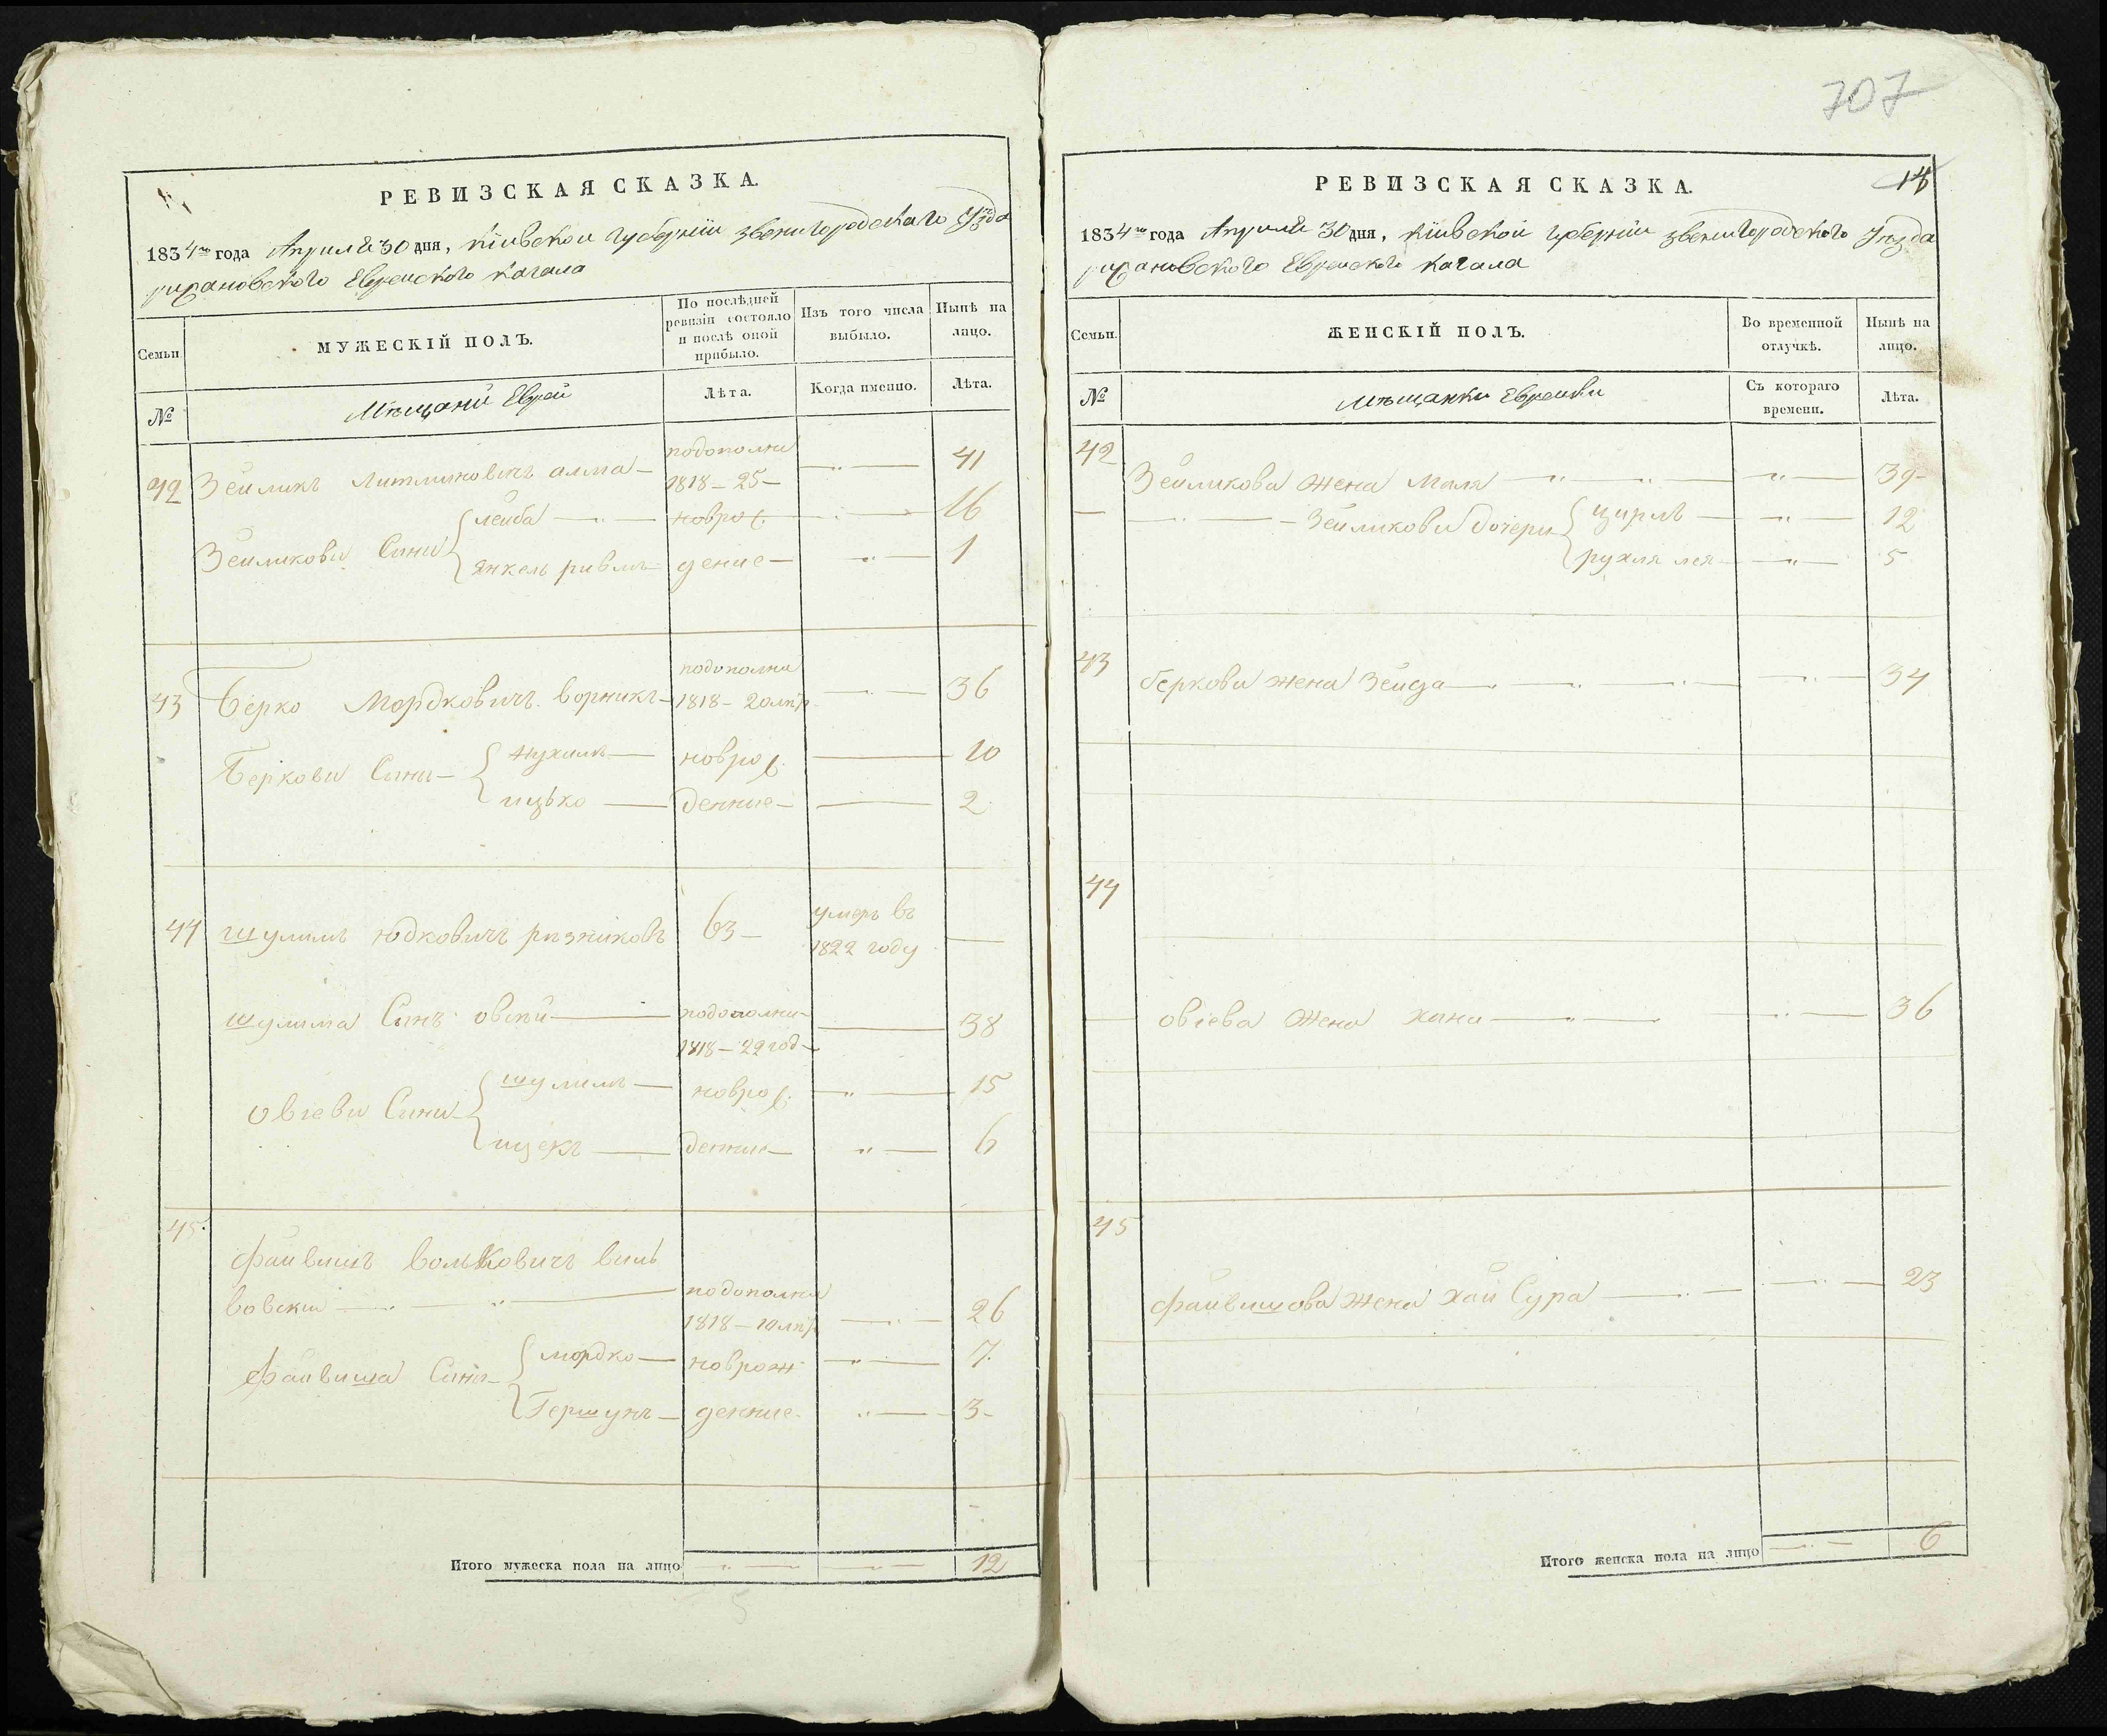 707
РЕВИЗСКАЯ СКАЗКА.
1834го года Апреля 30 дня, Кіивской губерніи звенигородскаго Уѣзда
рижановского Евреиского кагала
Семьи.
МУЖЕСКІЙ ПОЛЪ.
По послѣдней ревизіи состояло и послѣ оной прибыло.
Изъ того числа выбыло.
Нынѣ на лицо.
№
Мѣщани Евреи
Лѣта.
Когда именно.
Лѣта.
42 Зеиликъ 41
подополни
1818 — 25 —
Зеиликови Сини { леиба — новрож. 16
янкель дение — 1
43 Берко Мордковичъ 36
подополни
1818 — 20
Беркови Сини { новрож. 10
ицько — дение — 2
44 шулимъ юдковичъ резниковъ 63 —
умеръ въ
1822 году
шулима Синъ овсѣи — 38
подополни
1818 — 22 год
Овіеви Сини { шулимъ — новрож. 15
ицекъ — дение — 6
45
фаивишъ вольковичъ
подополни
1818 — 10 26
фаивиша Сини { мордко — новрож 7.
Гершунъ — дение 3 —
Итого мужеска пола на лицо 12
РЕВИЗСКАЯ СКАЗКА.
18
1834го года Апреля 30 дня, Кіивской губерніи звенигородского Уѣзда
рижановского Евреиского кагала
Семьи.
ЖЕНСКІЙ ПОЛЪ.
Во временной отлучкѣ.
Нынѣ на лицо.
№
Мѣщанки Евреики
Съ котораго времени.
Лѣта.
42
Зеиликова жена Маля 39 —
Зеиликови дочери { цирль 12
рухля лея 5
43
Беркови жена Зеисда 34
44
Овіева жена хана 36
45
фаивишова жена хаи Сура 23
Итого женска пола на лицо 6